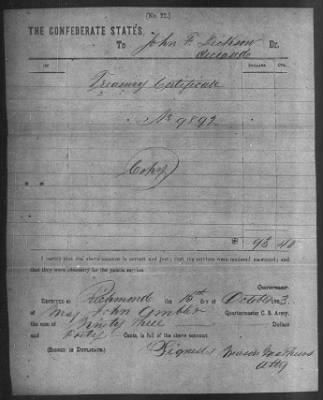 [No. 22.]
THE CONFEDERATE STATES,
To John F. Dickson Dr.
deceased
DOLLARS. CTS.
Treasury Certificate
No 9892
(Copy)
93 40
I certify that the above account is correct and just; that the services were rendered as stated; and
that they were necessary for the public service.
Quartermaster.
RECEIVED at Richmond the 15th day of October 3.
of Maj John Ambler Quartermaster C. S. Army,
the sum of Ninety three Dollars
and Forty Cents, in full of the above account.
(SIGNED IN DUPLICATE.) Signed Mason Mathews
Atty